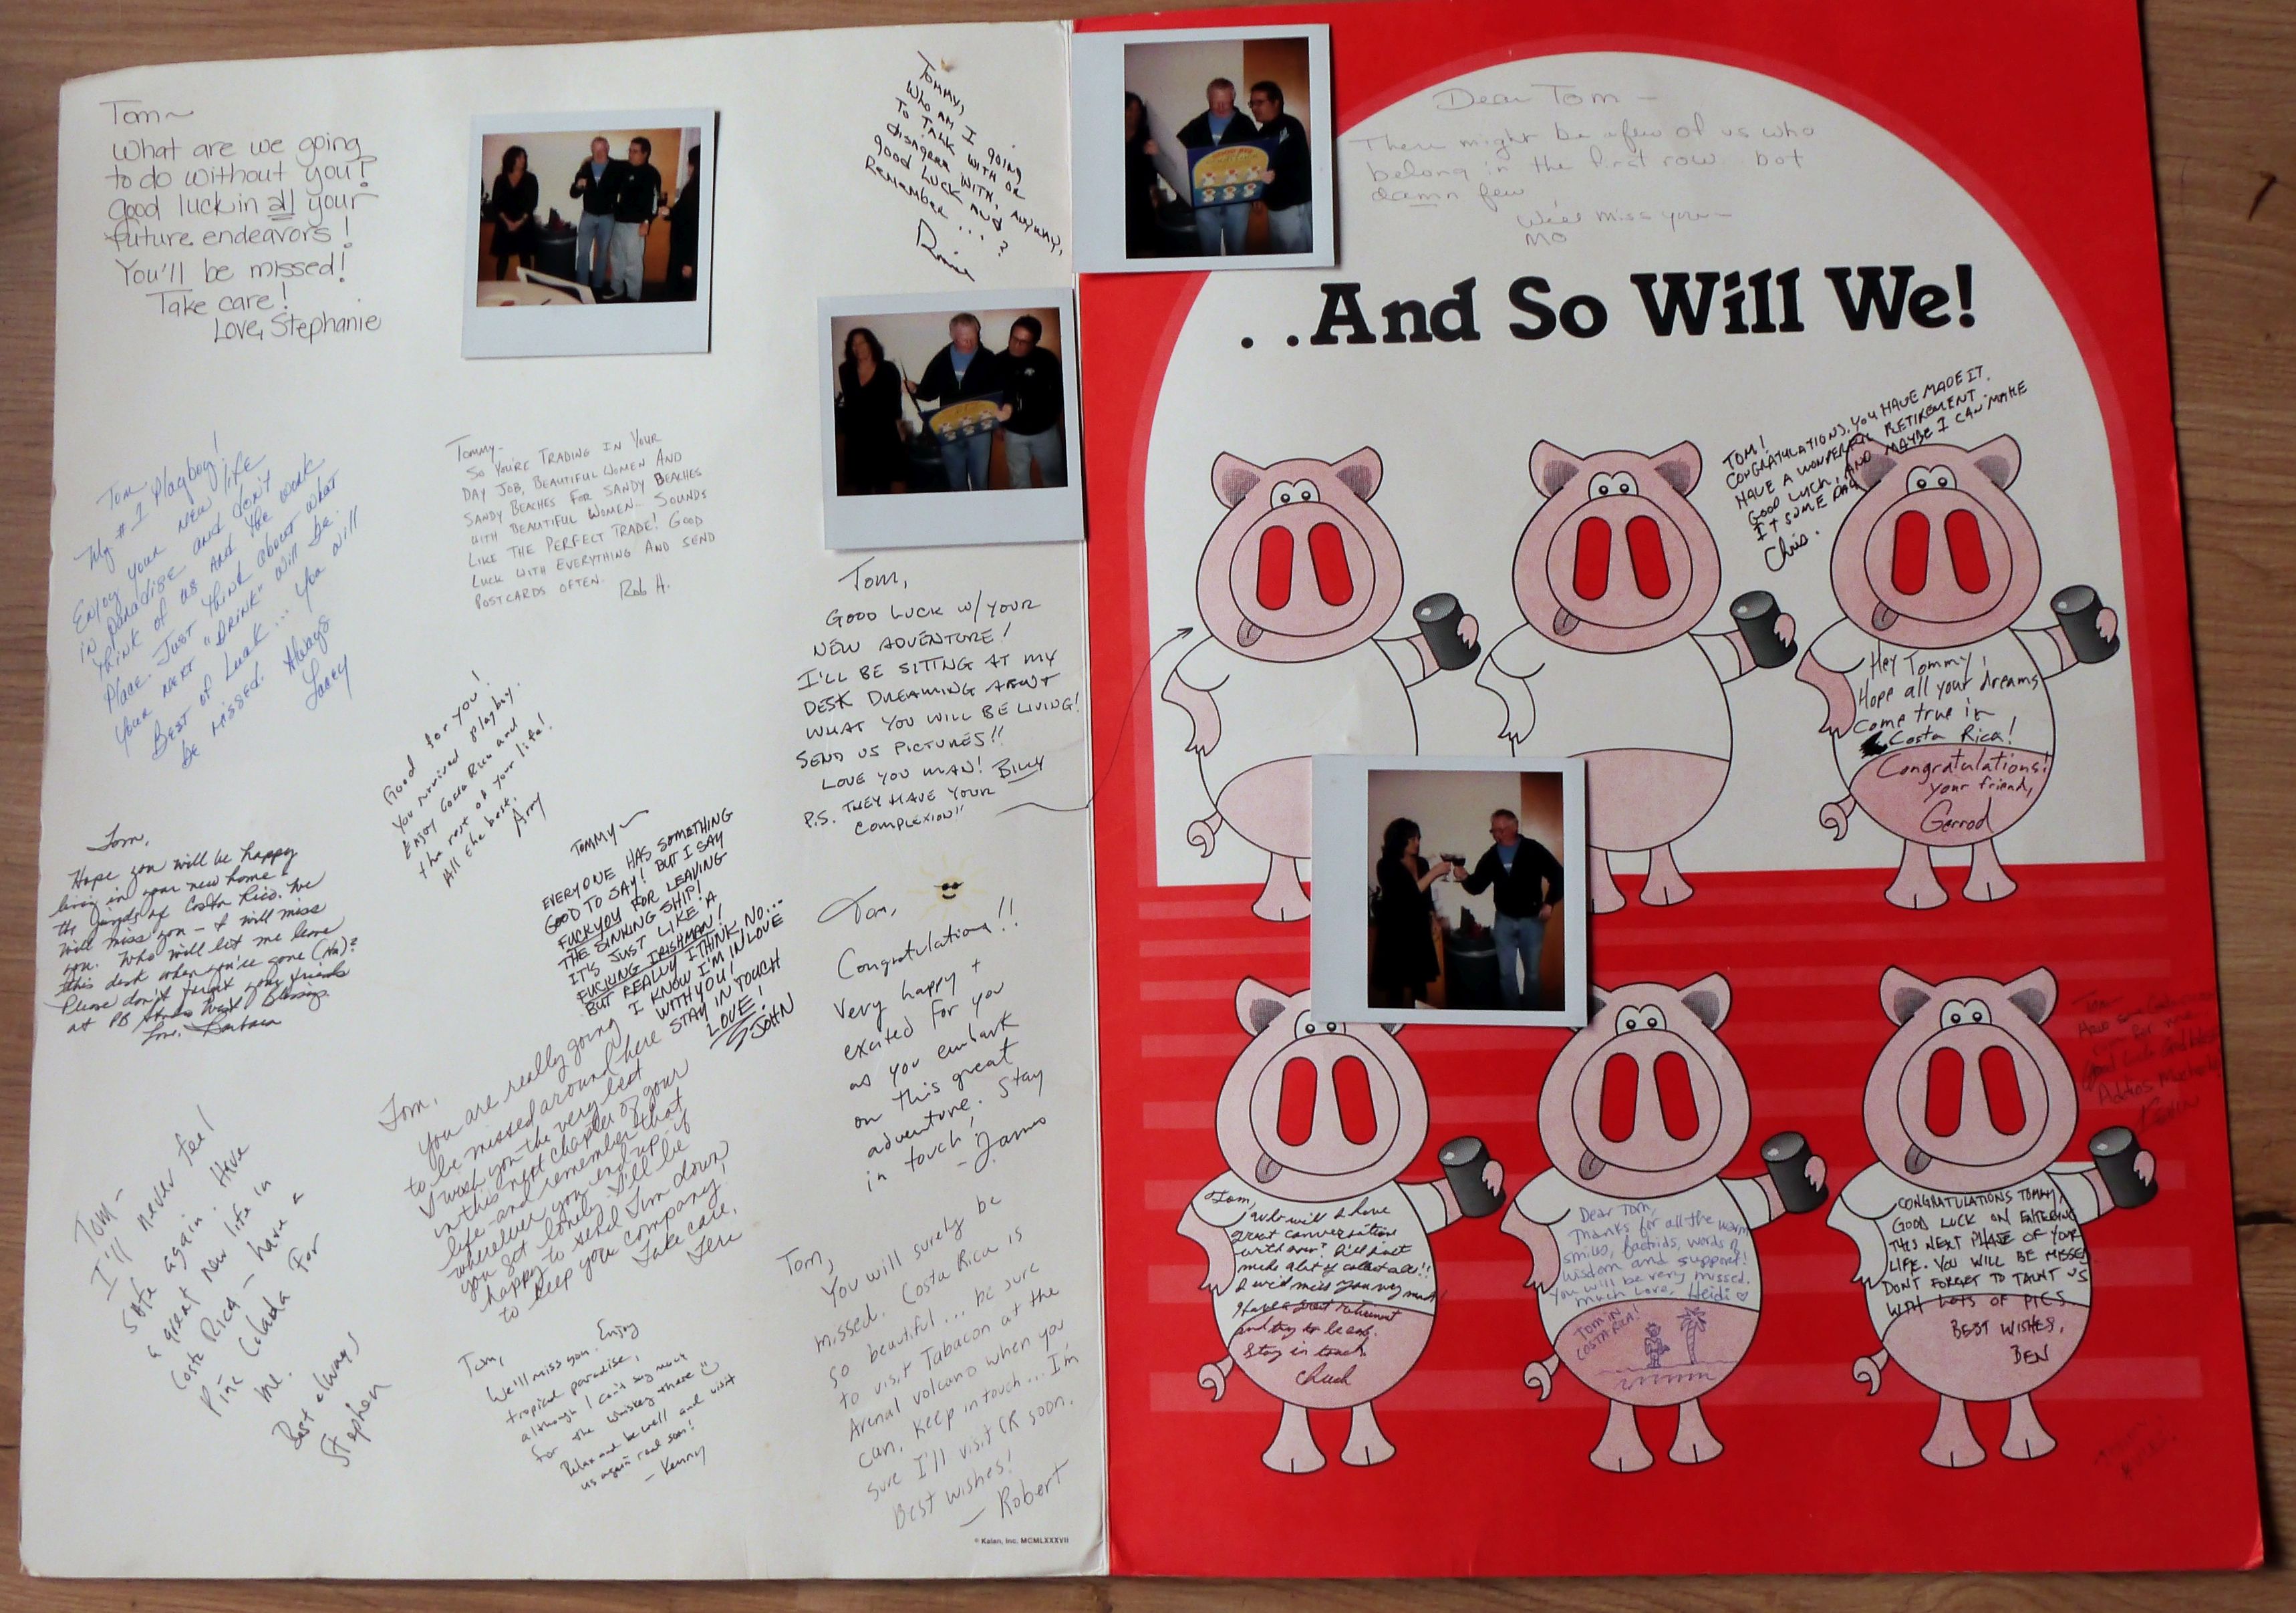 Tom~
What are we going
to do without you?
Good luck in all your
future endeavors!
You'll be missed!
Take care!
Love, Stephanie
Tommy,
Who am I going
to talk with or
disagree with, anyway,
good luck and
remember...?
Tom
My #1 Playboy!
Enjoy your new life
in Paradise and don't
think of us and the work
Place. Just think about what
your next "Drink" will be.
Best of Luck... You will
be missed. Always
Tommy-
So you're trading in your
day job, beautiful women and
sandy beaches for sandy beaches
with beautiful women. Sounds
like the perfect trade! Good
luck with everything and send
postcards often. Rob H.
Good for you!
You survived playboy.
Enjoy Costa Rica and
the rest of your life!
All the best,
Amy
Tom,
Good luck w/ your
new adventure!
I'll be sitting at my
desk dreaming about
what you will be living!
Send us pictures!!
Love you man! Billy
P.S. They have your
complexion!!
Tom,
Hope you will be happy
living in your new home &
the jungles of Costa Rico. We
will miss you - I will miss
you. Who will let me leave
this desk when you're gone (Ha)?
Please don't forget your friends
at PB Studio West. Blessings.
Love, Barbara
Tommy~
Everyone has something
good to say! But I say
fuck you for leaving
the sinking ship!
It's just like a
fucking Irishman!
But really I think no...
I know I'm in love
with you!
Stay in touch
Love!
John
Tom,
Congratulations!!
Very happy +
excited for you
as you embark
on this great
adventure. Stay
in touch!
- James
Tom,
You are really going
to be missed around here
I wish you the very best
in this next chapter of your
life - and remember that
wherever you end up, if
you get lonely I'll be
happy to send Jim down
to keep you company.
Take care,
Teri
Tom -
I'll never feel
safe again. Have
a great new life in
Costa Rica - have a
Piña Colada for
me.
Best always
Stephen
Tom,
We'll miss you. Enjoy
tropical paradise,
although I can't say much
for the whiskey there ☺
Relax and be well and visit
us again real soon!
- Kenny
Tom,
You will surely be
missed. Costa Rica is
so beautiful... be sure
to visit Tabacon at the
Arenal volcano when you
can. Keep in touch... I'm
sure I'll visit CR soon.
Best wishes!
- Robert
© Kalan, Inc. MCMLXXXVII
Dear Tom -
There might be a few of us who
belong in the first row. but
damn few
We'll miss you -
Mo
..And So Will We!
Tom!
Congratulations. You have made it.
Have a wonderful retirement.
Good luck, and maybe I can make
it some day
Chris.
Hey Tommy,
Hope all your dreams
come true in
Costa Rica!
Congratulations!
your friend,
Gerrod
Tom,
who will I have
great conversations
with now? I'll have
make a lot of collect calls!!
I will miss you very much
Have a great retirement
and try to be
Stay in touch
Chuck
Dear Tom,
Thanks for all the warm
smiles, words of
wisdom and support!
You will be very missed.
much love, Heidi ♡
Tom in
Costa Rica!
Congratulations Tommy!
Good luck on entering
this next phase of your
life. You will be missed
Don't forget to taunt us
with lots of pics.
Best wishes,
Ben
Tom
Have some
for me
Good Luck